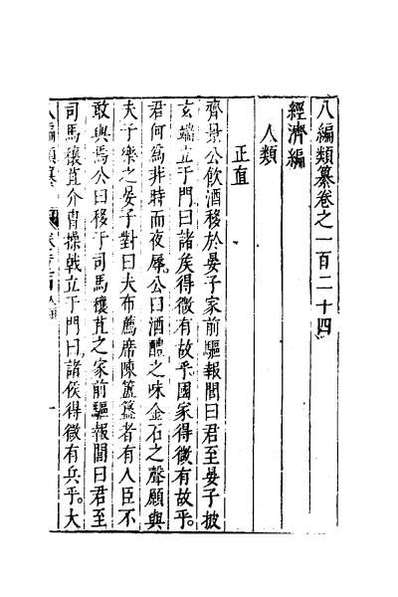 八編類纂卷之一百二十四
經濟編
人類
正直
齊景公飲酒移於晏子家前驅報閭曰君至晏子披
玄端立于門曰諸矦得微有故乎國家得微有故乎
君何爲非時而夜辱公曰酒醴之味金石之聲願與
夫子樂之晏子對曰夫布薦席陳簠簋者有人臣不
敢與焉公曰移于司馬穰苴之家前驅報閭曰君至
司馬穰苴介冑操戟立于門曰諸矦得微有兵乎大
八編類纂